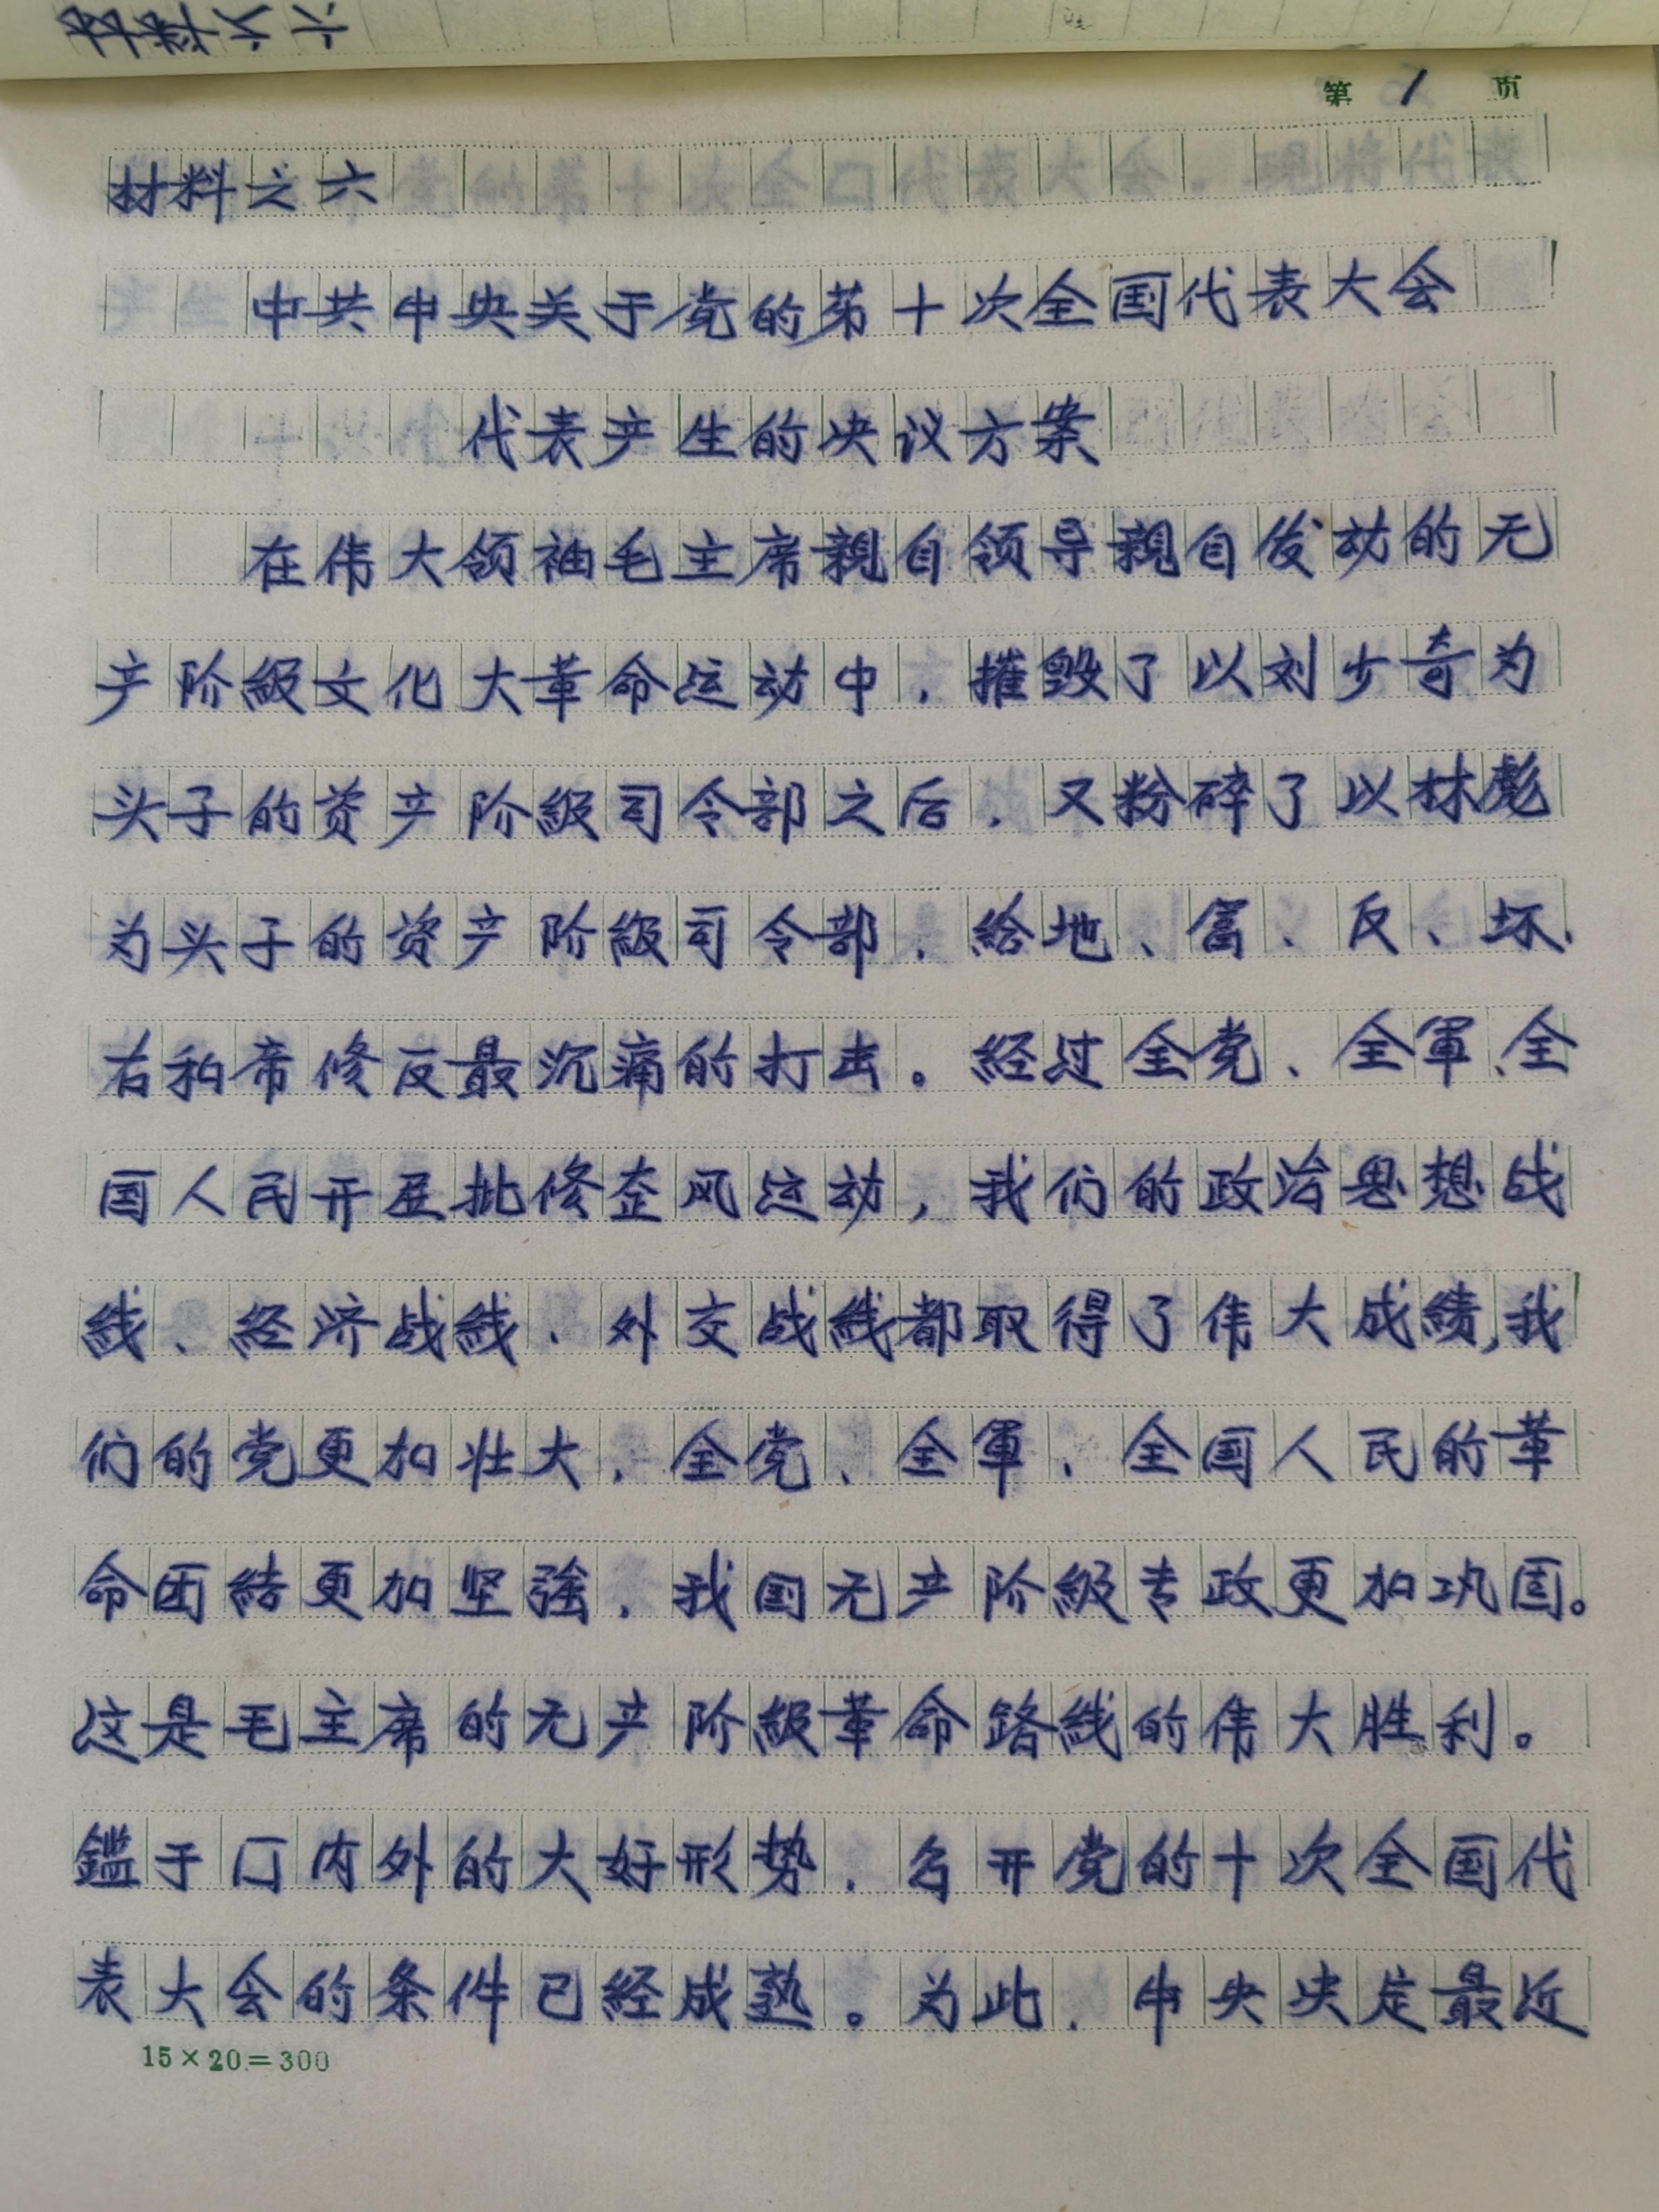 材料之六
第 1 页
材料之六
中共中央关于党的第十次全国代表大会
代表产生的决议方案
在伟大领袖毛主席親自领导親自发动的无
产阶級文化大革命运动中，摧毁了以刘少奇为
头子的资产阶級司令部之后，又粉碎了以林彪
为头子的资产阶級司令部，給地、富、反、坏、
右和帝修反最沉痛的打击。经过全党、全軍、全
国人民开展批修整风运动，我们的政治思想战
线、経济战線、外交战線都取得了伟大成績，我
们的党更加壮大，全党、全軍、全国人民的革
命团結更加坚強，我国无产阶級专政更加巩固。
这是毛主席的无产阶級革命路线的伟大胜利。
鑑于囗内外的大好形势，召开党的十次全国代
表大会的条件已経成熟。为此，中央决定最近
15×20=300